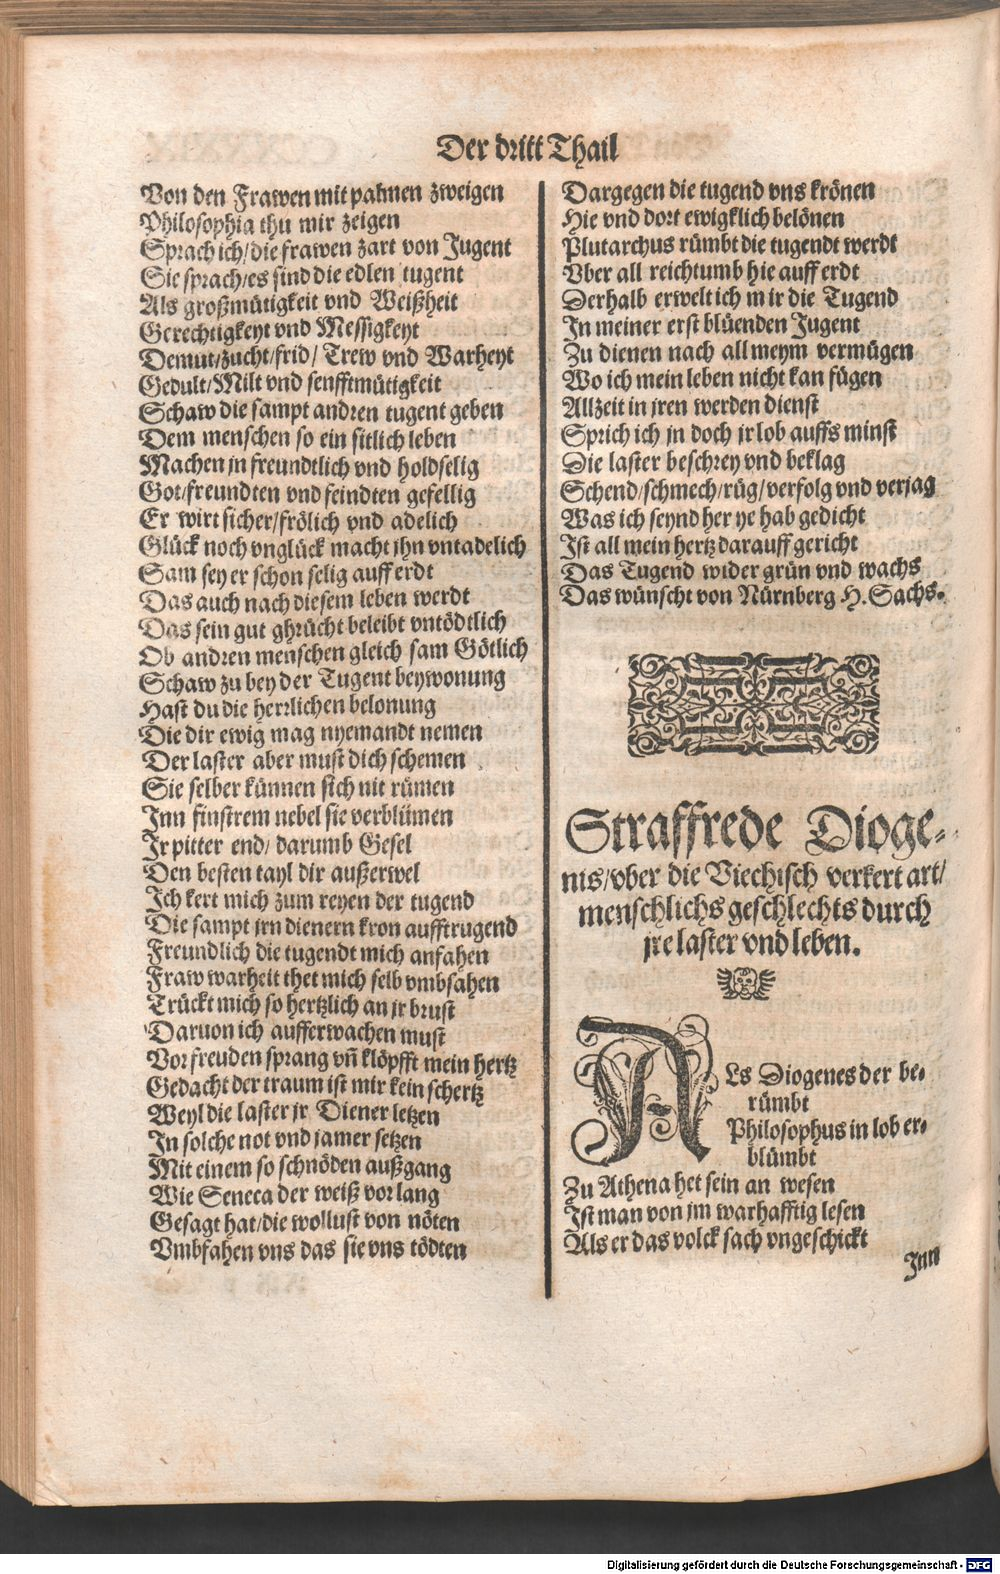 Der dritt Thail
Von den Frawen mit palmen zweigen
Philosophia thu mir zeigen
Sprach ich/die frawen zart von Jugent
Sie sprach/es sind die edlen tugent
Als großmütigkeit vnd Weißheit
Gerechtigkeyt vnd Messigkeyt
Demut/zucht/frid/ Trew vnd Warheyt
Gedult/Milt vnd senfftmütigkeit
Schaw die sampt andren tugent geben
Dem menschen so ein sitlich leben
Machen jn freundtlich vnd holdselig
Got/freundten vnd feindten gefellig
Er wirt sicher/frölich vnd adelich
Glück noch vnglück macht jhn vntadelich
Sam sey er schon selig auff erdt
Das auch nach diesem leben werdt
Das sein gut ghrücht beleibt vntödtlich
Ob andren menschen gleich sam Götlich
Schaw zu bey der Tugent beywonung
Hast du die herrlichen belonung
Die dir ewig mag nyemandt nemen
Der laster aber must dich schemen
Sie selber künnen sich nit rümen
Inn finstrem nebel sie verblümen
Ir pitter end/ darumb Gesel
Den besten tayl dir außerwel
Ich kert mich zum reyen der tugend
Die sampt jrn dienern kron aufftrugend
Freundlich die tugendt mich anfahen
Fraw warheit thet mich selb vmbfahen
Trückt mich so hertzlich an jr brust
Daruon ich aufferwachen must
Vor freuden sprang vñ klöpfft mein hertz
Gedacht der traum ist mir kein schertz
Weyl die laster jr Diener letzen
In solche not vnd jamer setzen
Mit einem so schnöden außgang
Wie Seneca der weiß vor lang
Gesagt hat/die wollust von nöten
Vmbfahen vns das sie vns tödten
Dargegen die tugend vns krönen
Hie vnd dort ewigklich belönen
Plutarchus rümbt die tugendt werdt
Vber all reichtumb hie auff erdt
Derhalb erwelt ich mir die Tugend
In meiner erst blüenden Jugent
Zu dienen nach all meym vermügen
Wo ich mein leben nicht kan fügen
Allzeit in jren werden dienst
Sprich ich jn doch jr lob auffs minst
Die laster beschrey vnd beklag
Schend/schmech/rüg/verfolg vnd verjag
Was ich seynd her ye hab gedicht
Ist all mein hertz darauff gericht
Das Tugend wider grün vnd wachs
Das wünscht von Nürnberg H. Sachs.
Straffrede Dioge-
nis/vber die Viechisch verkert art/
menschlichs geschlechts durch
jre laster vnd leben.
ALs Diogenes der be-
rümbt
Philosophus in lob er-
blümbt
Zu Athena het sein an wesen
Ist man von jm warhafftig lesen
Als er das volck sach vngeschickt
Inn
Digitalisierung gefördert durch die Deutsche Forschungsgemeinschaft - DFG